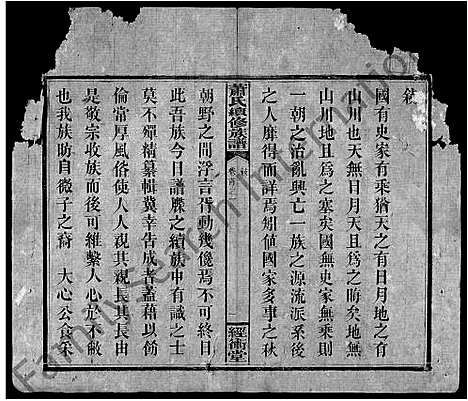 敘
國有史家有乘猶天之有日月地之有
山川也天無日月天且爲之晦矣地無
山川地且爲之塞矣國無史家無乘則
一朝之治亂興亡一族之源流派系後
之人靡得而詳焉矧値國家多事之秋
蕭氏續修族譜
卷首
敘
一
經術堂
朝野之間浮言胥動幾儳焉不可終日
此吾族今日譜牒之續族中有識之士
莫不殫精纂輯冀幸告成者蓋藉以飭
倫常厚風俗使人人親其親長其長由
是敬宗收族而後可維繫人心於不敝
也我族肪自微子之裔 大心公食采
FamilySearch International